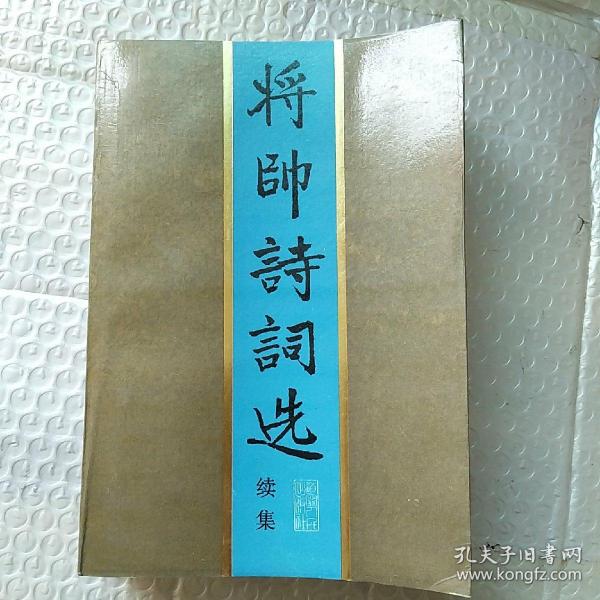 将帥詩詞选
续集
孔夫子旧书网
www.kongfz.com